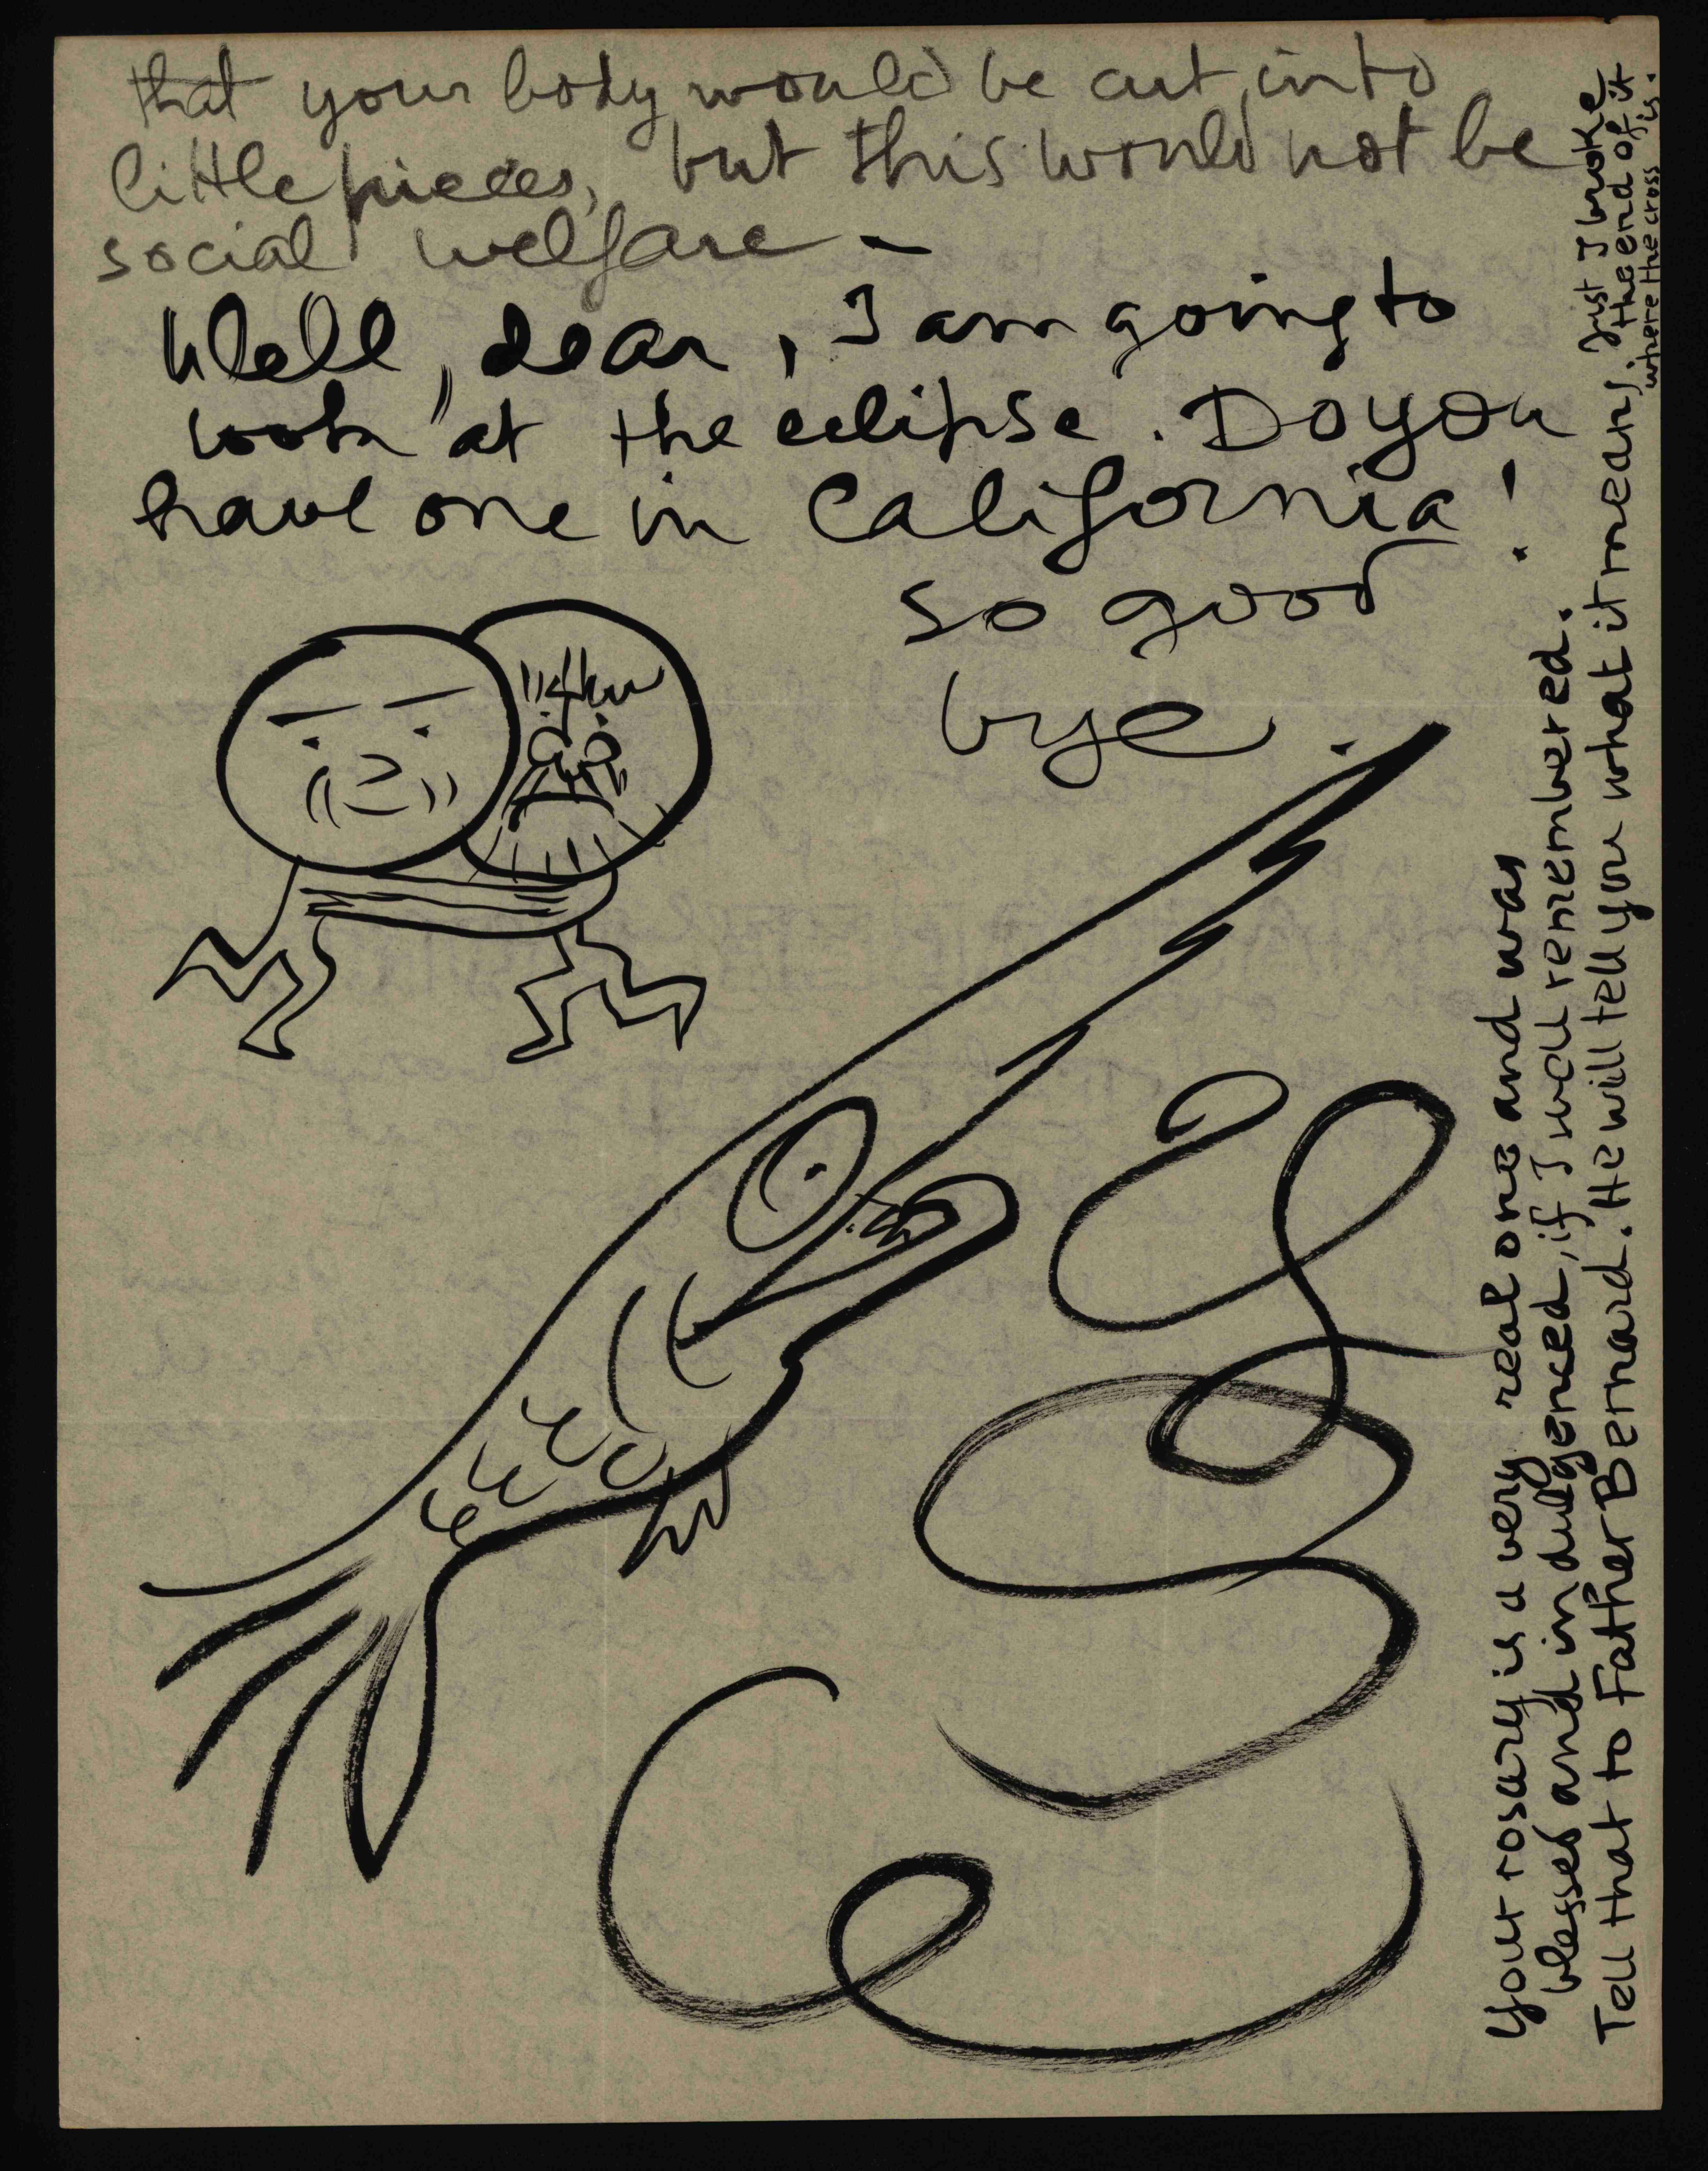 that your body would be cut into
little pieces, but this would not be
social welfare -
Well, dear, I am going to
look at the eclipse. Do you
have one in California!
so good
bye.
Your rosary is a very real one and was
blessed and indulgenced, if I well remembered.
Tell that to Father Bernard. He will tell you what it means. Just I broke
the end of it
where the cross is.